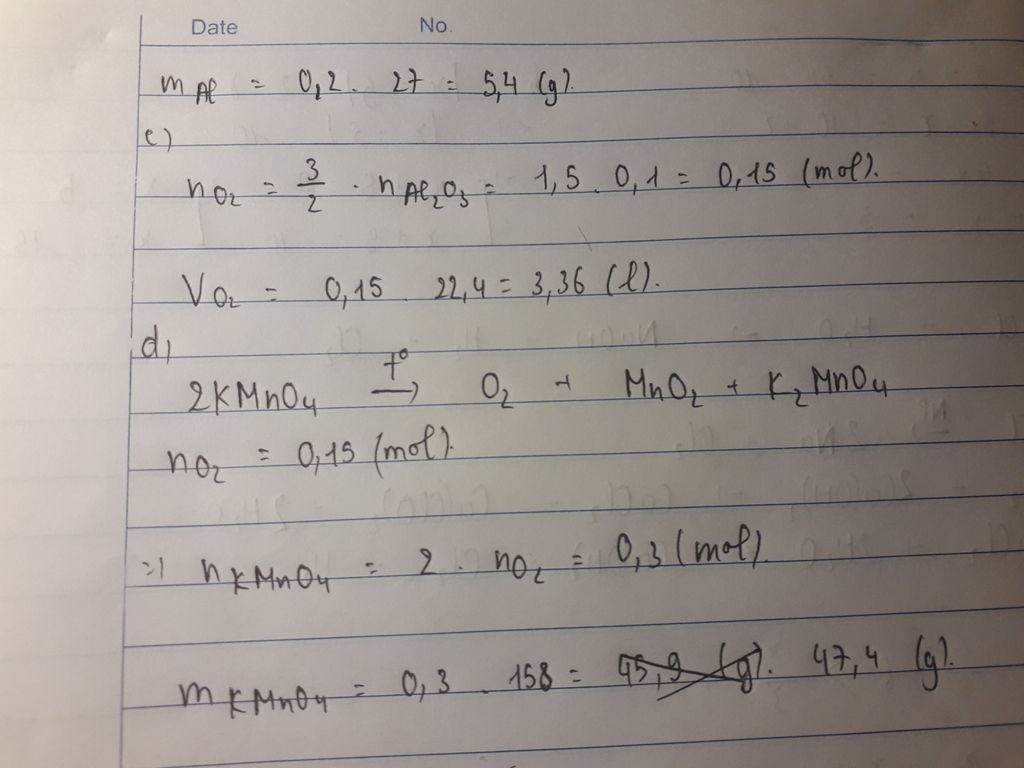 Date No.
m Al = 0,2 . 27 = 5,4 (g).
c)
nO2 = 3/2 . nAl2O3 = 1,5 . 0,1 = 0,15 (mol).
VO2 = 0,15 . 22,4 = 3,36 (l).
d)
2KMnO4 t° → O2 + MnO2 + K2MnO4
nO2 = 0,15 (mol).
=) nKMnO4 = 2 . nO2 = 0,3 (mol).
mKMnO4 = 0,3 . 158 = 45,9 (g). 47,4 (g).